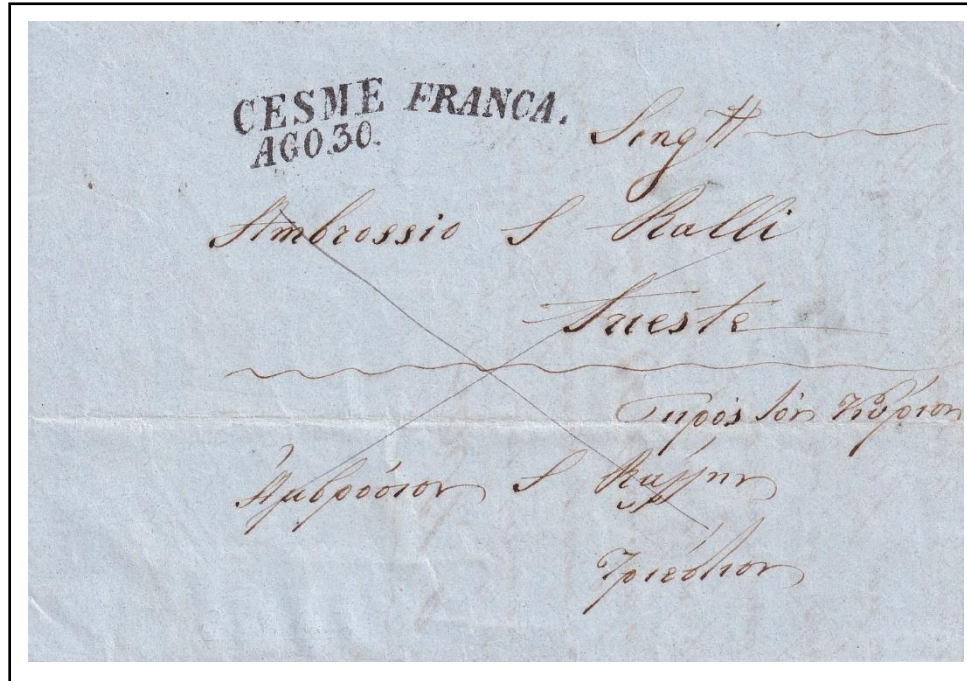 CESME FRANCA.
AGO.30.
Sengʳ
Ambrossio S Ralli
Trieste
Πρὸς τὸν Κύριον
Ἀμβρόσιον S Ράλλην
Τριέστιον